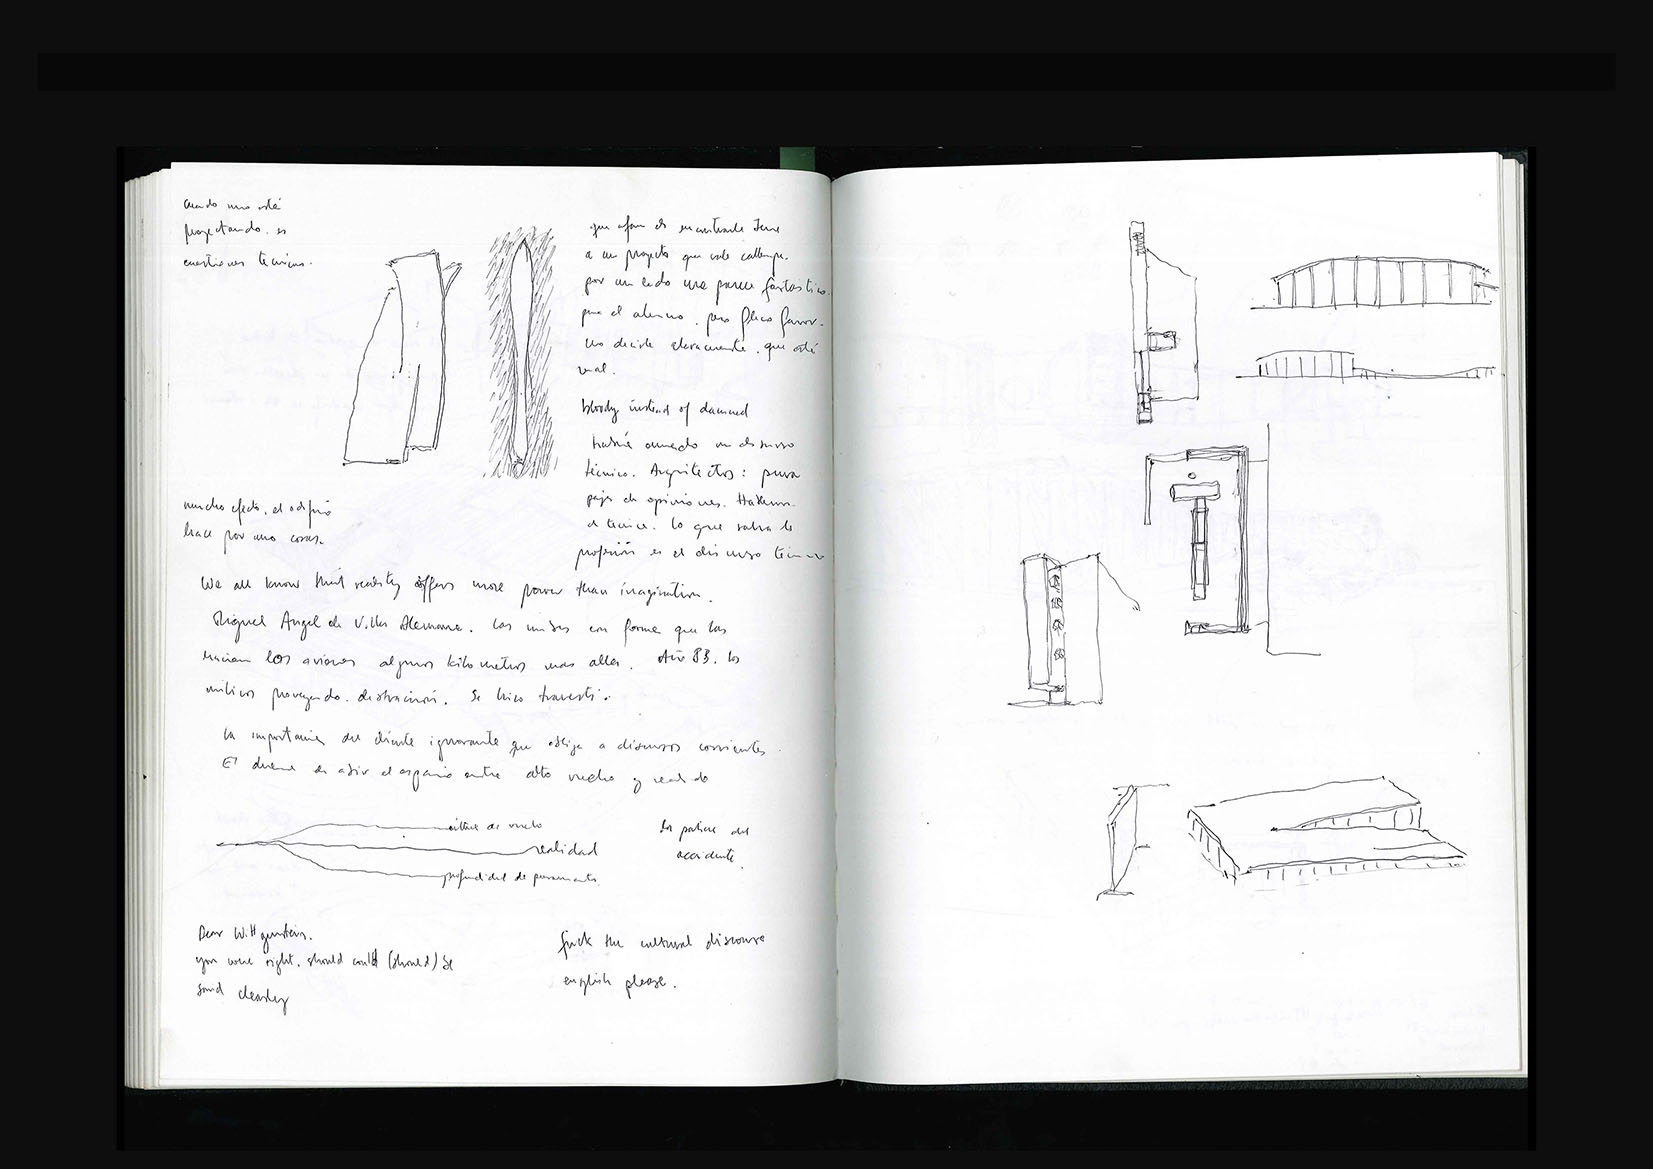 cuando uno está
proyectando. es
cuestiones técnicas.
que afan de encontrarle
a un proyecto que
por un lado me parece fantastico.
para el alumno. pero flaco favor.
no decirle claramente. que está
mal.
bloody instead of damned
un discurso
técnico. Arquitectos: pura
paja de opiniones.
lo que salva la
profesión es el discurso técnico
mucho efecto. el edificio
hace por una cosa.
We all know that reality offers more power than imagination.
Miguel Angel de Villa Alemana. Las con forma que las
hacían los aviones algunos kilometros mas alla. Año 83. los
milicos proveyendo. distracción. Se hizo travesti.
La importancia del cliente ignorante que obliga a discursos corrientes
El es abrir el espacio entre alto vuelo y realidad
altura de vuelo
realidad
profundidad de pensamiento.
accidente.
Dear Wittgenstein.
you were right. should could (should) be
said clearly
fuck the cultural discourse
english please.